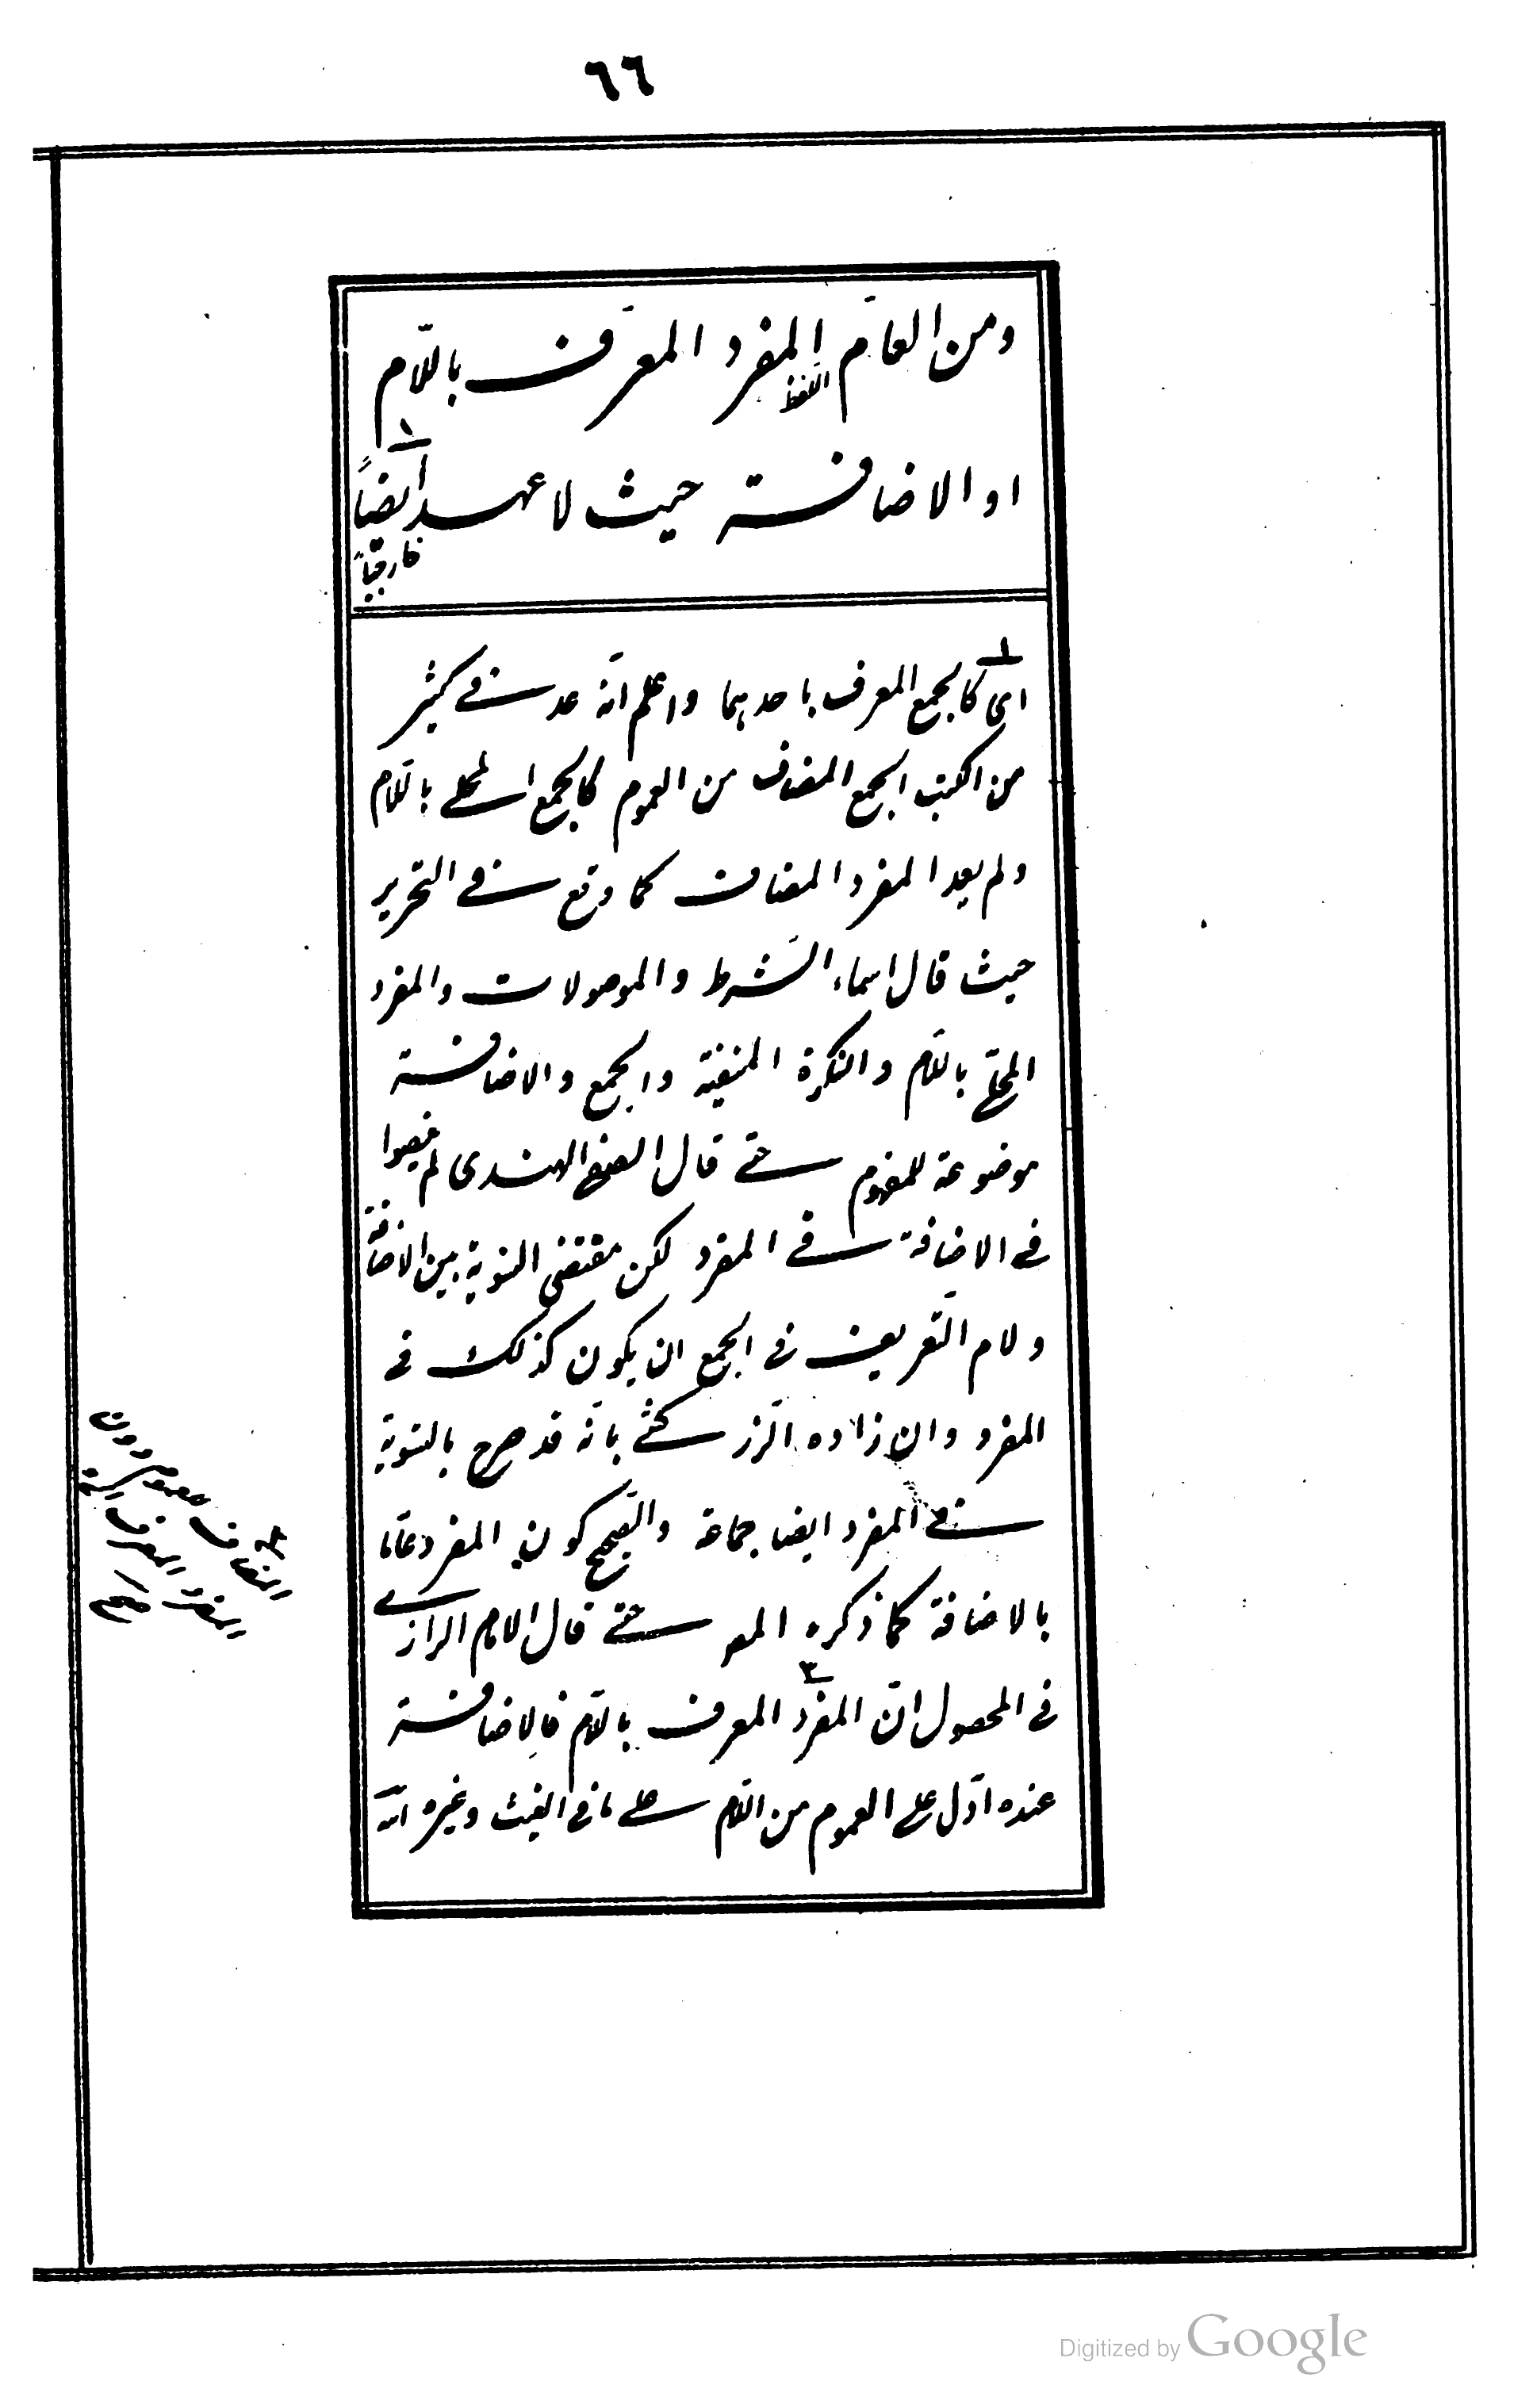 ٦٦
ومن العامّ المفرد المعرّف باللّام
اللفظ
او الاضافة حيث لا عهد ايضاً ١
خارجياً
١ اى كالجمع المعرف باحدهما واعلم انّه عد فى كثير
من الكتب الجمع المضاف من العموم كالجمع المحلى باللّام
ولم يعد المفرد المضاف كما وقع فى التحرير
حيث قال اسماء الشّرط والموصولات والمفرد
المحلّى باللّام والنكرة المنفيّة والجمع والاضافة
موضوعة للمفهوم حتى قال الصفى الهندى لم ينصوا
فى الاضافة فى المفرد لكن مقتضى التسوية بين الاضافة
ولام التّعريف فى الجمع ان يكون كذلك فى
المفرد وان زاده الزّركشى بانّه قد صرح بالتسوية
فى المفرد ايضا جماعة والصّحيح كون المفرد عامّا
بالاضافة كما ذكره المص حتى قال الامام الرازى
فى المحصول انّ المفرد ٣ المعرف باللّام فالاضافة
عنده ادّل على العموم من اللّام على ما فى الغيث وغيره انّه
المضاف
المفرد المعرف
Digitized by Google